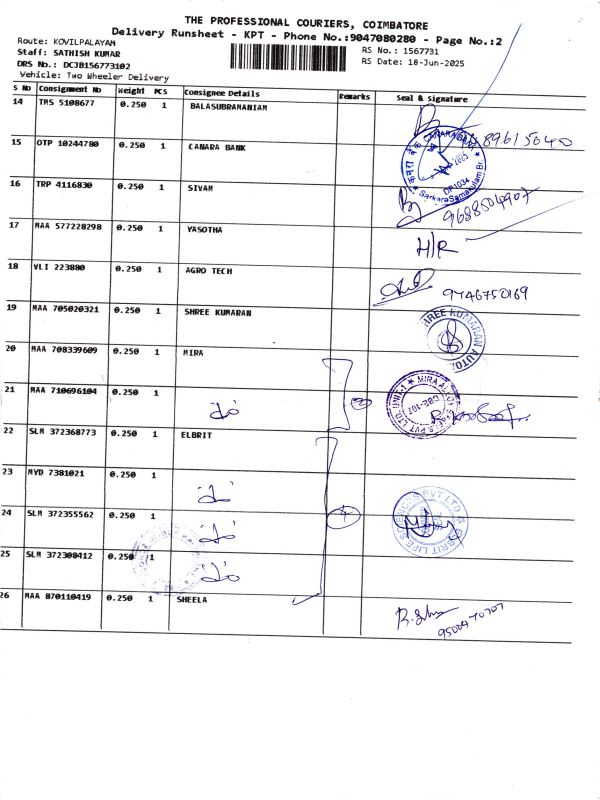 THE PROFESSIONAL COURIERS, COIMBATORE
Delivery Runsheet - KPT - Phone No.:9047080280 - Page No.:2
Route: KOVILPALAYAM
Staff: SATHISH KUMAR
DRS No.: DCJB156773102
Vehicle: Two Wheeler Delivery
RS No.: 1567731
RS Date: 18-Jun-2025
S No Consignment No Weight PCS Consignee Details Remarks Seal & Signature
14 TMS 5108677 0.250 1 BALASUBRAMANIAM
15 OTP 10244780 0.250 1 CANARA BANK
CANARA BANK
DP1034
SarkaraSamakulam Br.
16 TRP 4116830 0.250 1 SIVAM 9688504907
17 MAA 577228298 0.250 1 YASOTHA H/R
18 VLI 223880 0.250 1 AGRO TECH 9746750169
19 MAA 705020321 0.250 1 SHREE KUMARAN
SHREE KUMARAN AUTO
20 MAA 708339609 0.250 1 MIRA
21 MAA 710696104 0.250 1
CBE-107
22 SLM 372368773 0.250 1 ELBRIT
23 MYD 7381021 0.250 1
24 SLM 372355562 0.250 1 4
25 SLM 372308412 0.250 1
26 MAA 870110419 0.250 1 SHEELA